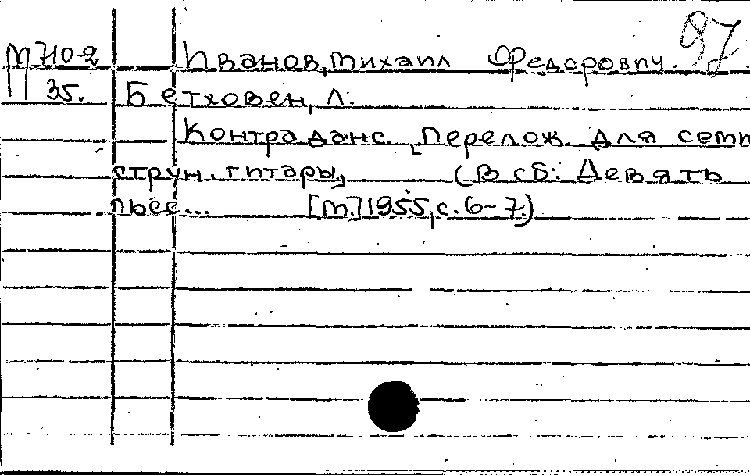 М710-2 Иванов, Михаил Федорович. 97
35. Бетховен, Л.
Контраданс. Перелож. для семи
струн. гитары, (В сб: Девять
пьес... [М.] 1955, с. 6-7.)